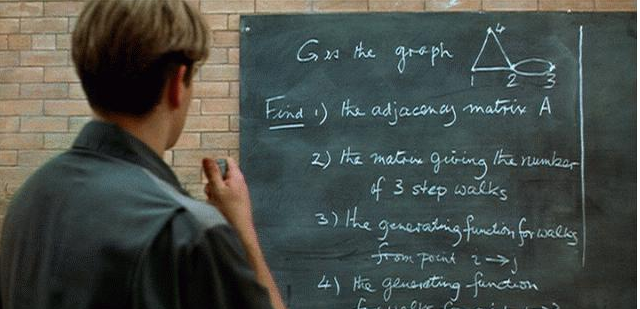 G is the graph
4
1 2 3
Find 1) the adjacency matrix A
2) the matrix giving the number
of 3 step walks
3) the generating function for walks
from point i → j
4) the generating function
for walks from